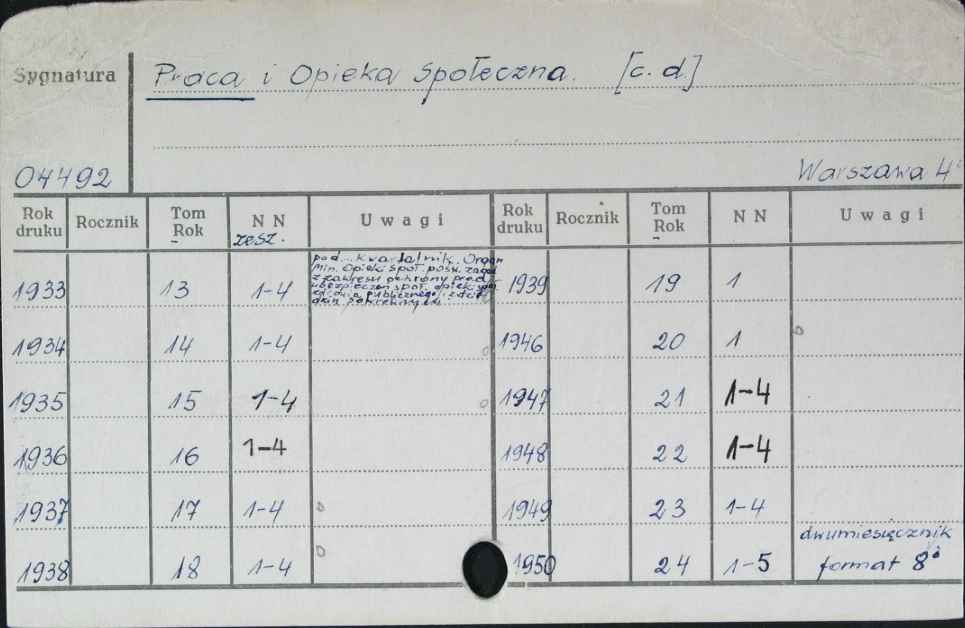 Sygnatura
Praca i Opieka Społeczna. [c. d]
04492
Warszawa 4°
Rok druku Rocznik Tom Rok NN zesz. Uwagi Rok druku Rocznik Tom Rok NN Uwagi
pod... Kwartalnik. Organ
Min. Opieki Społ. pośw. zagad
z zakresu ochrony pracy
ubezpieczeń społ. opieki społ
zdrowia publicznego
1933 13 1-4 1939 19 1
1934 14 1-4 1946 20 1
1935 15 1-4 1947 21 1-4
1936 16 1-4 1948 22 1-4
1937 17 1-4 1949 23 1-4
dwumiesięcznik
1938 18 1-4 1950 24 1-5 format 8°